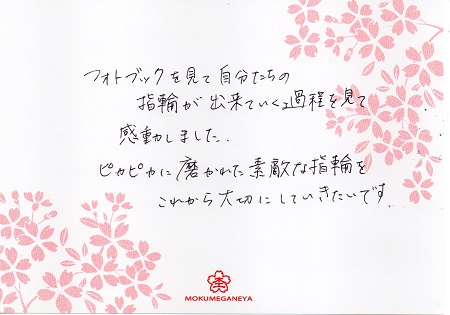 フォトブックを見て自分たちの
指輪が出来ていく過程を見て
感動しました..
ピカピカに磨かれた素敵な指輪を
これから大切にしていきたいです
MOKUMEGANEYA